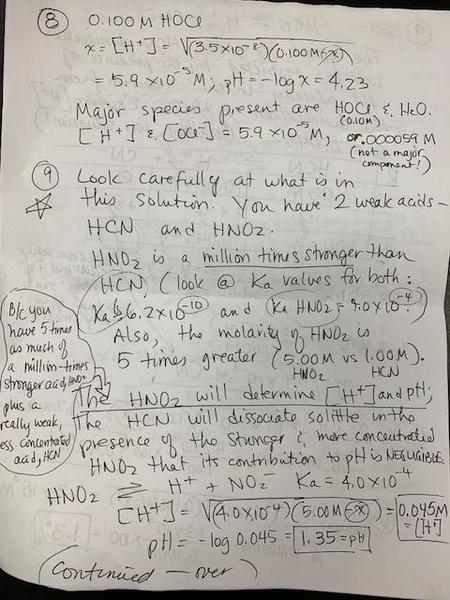 ⑧ 0.100 M HOCl
x = [H⁺] = √(3.5×10⁻⁸)(0.100M-x)
= 5.9 ×10⁻⁵M; pH = -log x = 4.23
Major species present are HOCl & H₂O.
(0.10M)
[H⁺] & [OCl⁻] = 5.9 ×10⁻⁵M, or .000059 M
(not a major
component!)
⑨ Look carefully at what is in
this solution. You have 2 weak acids -
HCN and HNO₂.
HNO₂ is a million times stronger than
HCN, (look @ Ka values for both:
Ka is 6.2×10⁻¹⁰ and (Ka HNO₂ = 4.0×10⁻⁴.)
Also, the molarity of HNO₂ is
5 times greater (5.00M vs 1.00M).
HNO₂ HCN
B/c you
have 5 times
as much of
a million-times
stronger acid, HNO₂
plus a
really weak,
less concentrated
acid, HCN
The HNO₂ will determine [H⁺] and pH;
The HCN will dissociate so little in the
presence of the stronger &, more concentrated
HNO₂ that its contribution to pH is NEGLIGIBLE.
HNO₂ ⇌ H⁺ + NO₂⁻ Ka = 4.0×10⁻⁴
[H⁺] = √(4.0×10⁻⁴)(5.00M-x) = 0.045M
= [H⁺]
pH = -log 0.045 = 1.35 = pH
(Continued - over)